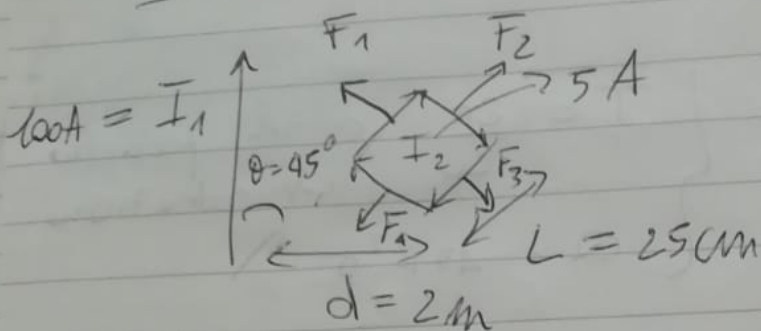 F̅₁ F̅₂
100A = I̅₁ 5 A
θ=45° I₂ F₃
F₄ L = 25 cm
d = 2m